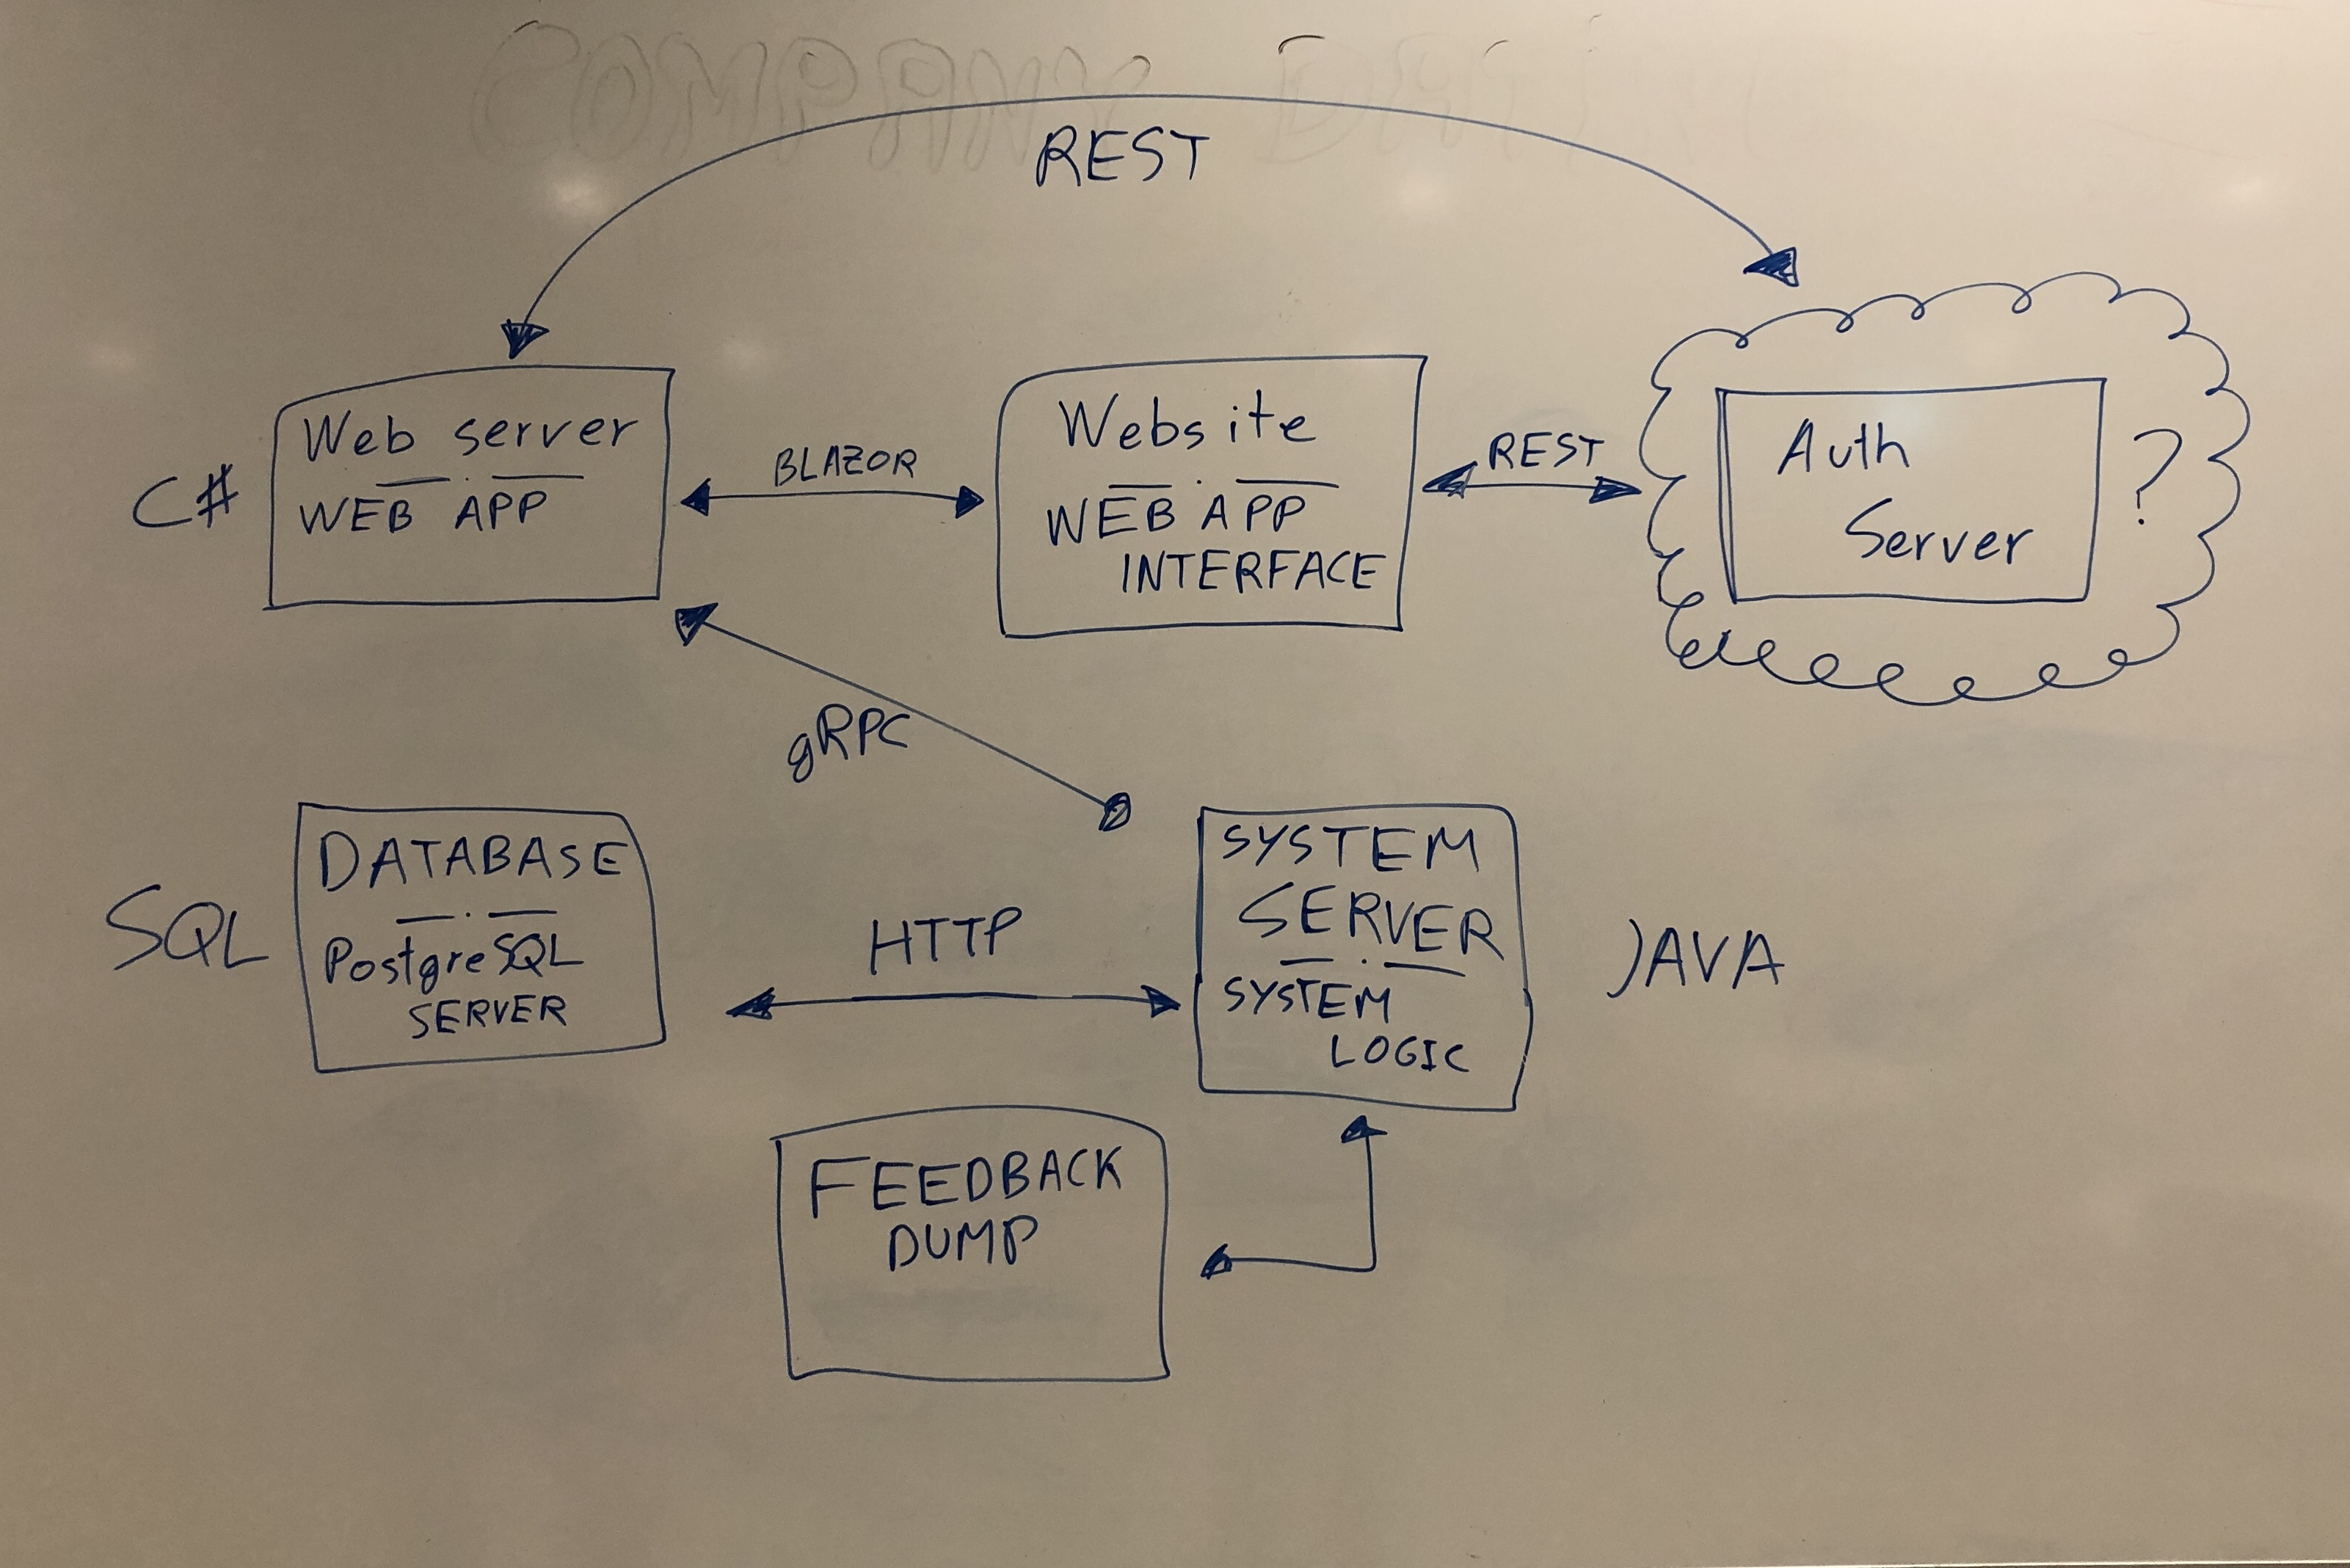 COMPANY
REST
C#
Web server
WEB APP
BLAZOR
Website
WEB APP
INTERFACE
REST
Auth
Server
?
gRPC
SQL
DATABASE
PostgreSQL
SERVER
HTTP
SYSTEM
SERVER
SYSTEM
LOGIC
JAVA
FEEDBACK
DUMP